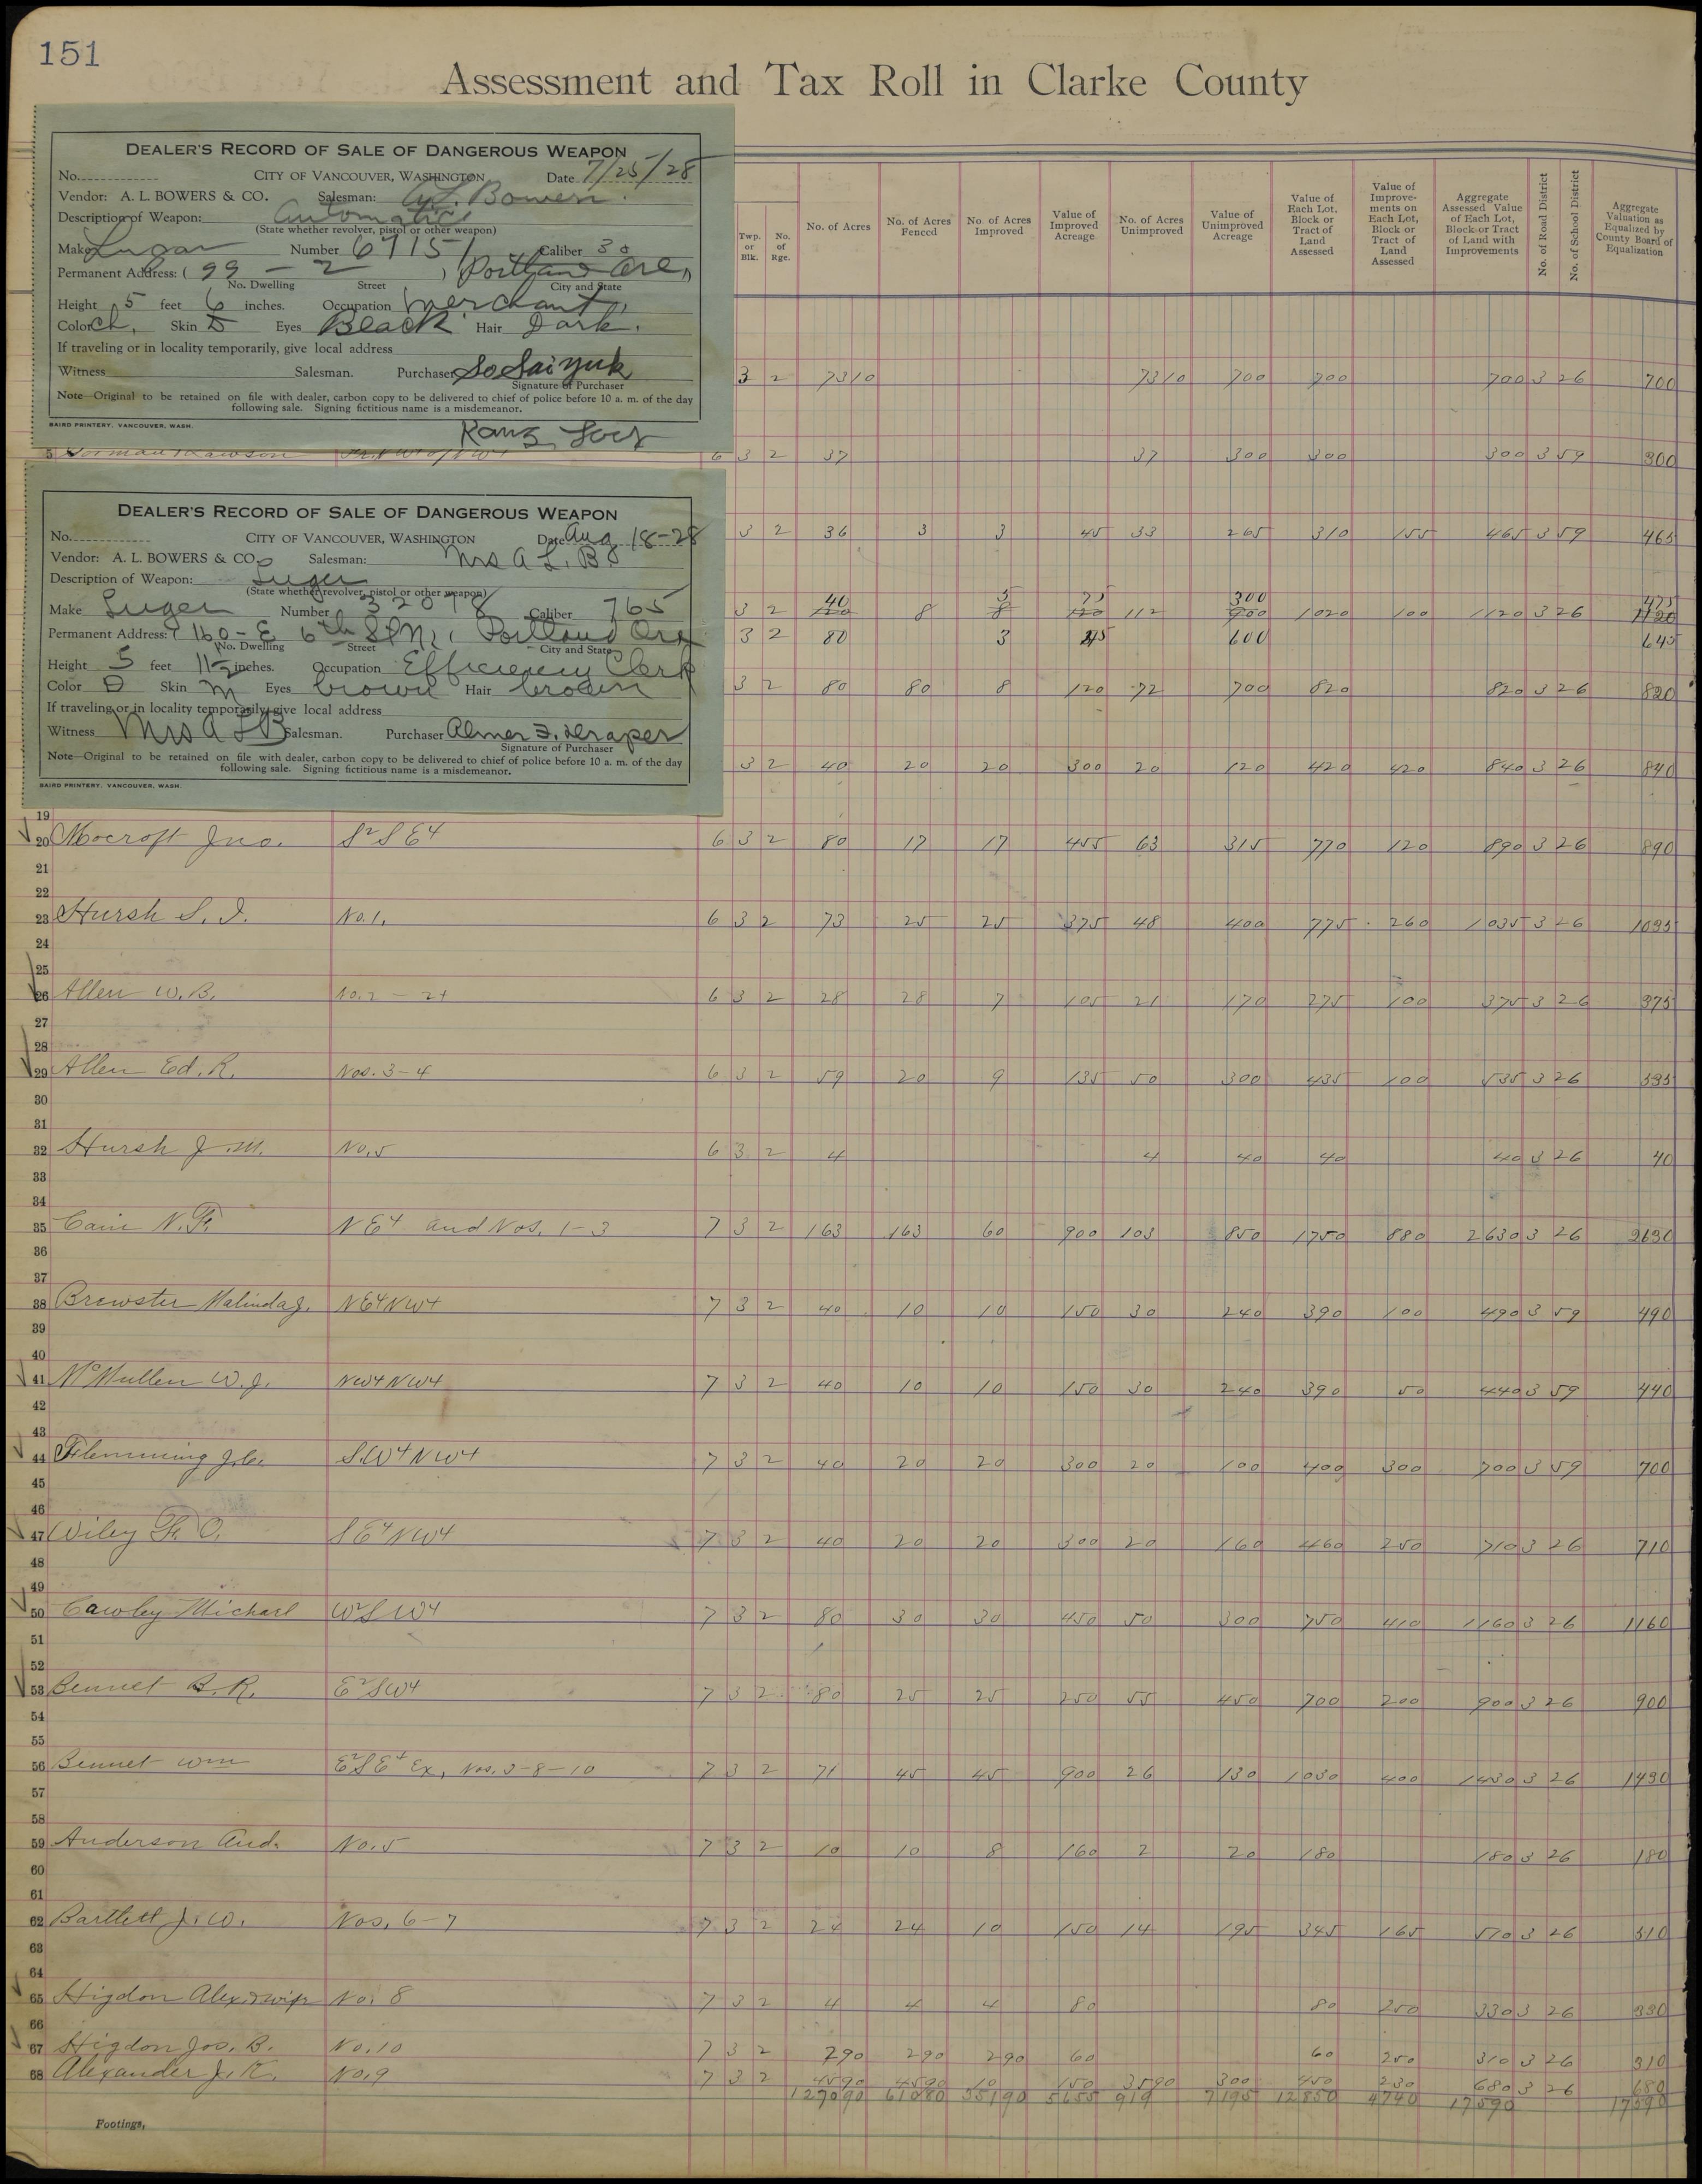 151
Assessment and Tax Roll in Clarke County
DEALER'S RECORD OF SALE OF DANGEROUS WEAPON
No. CITY OF VANCOUVER, WASHINGTON Date 7/25/28
Vendor: A. L. BOWERS & CO. Salesman: A.L. Bowers.
Description of Weapon: Automatic
(State whether revolver, pistol or other weapon)
Make Lugar Number 67151 Caliber 30
Permanent Address: (99 - 2 ) Portland Ore,
No. Dwelling Street City and State
Height 5 feet 6 inches. Occupation Merchant,
Color Ch, Skin D Eyes Black Hair Dark.
If traveling or in locality temporarily, give local address
Witness Salesman. Purchaser So Sai Yuk
Signature of Purchaser
Note—Original to be retained on file with dealer, carbon copy to be delivered to chief of police before 10 a. m. of the day
following sale. Signing fictitious name is a misdemeanor.
BAIRD PRINTERY, VANCOUVER, WASH.
DEALER'S RECORD OF SALE OF DANGEROUS WEAPON
No. CITY OF VANCOUVER, WASHINGTON Date Aug 18-28
Vendor: A. L. BOWERS & CO. Salesman: Mrs A L. B
Description of Weapon: Luger
(State whether revolver, pistol or other weapon)
Make Luger Number 32078 Caliber 765
Permanent Address: 160 - E 6th St N. Portland Ore
No. Dwelling Street City and State
Height 5 feet 11½ inches. Occupation Efficiency Clerk
Color D Skin M Eyes brown Hair brown
If traveling or in locality temporarily, give local address
Witness Mrs A L B Salesman. Purchaser Almer F. Draper
Signature of Purchaser
Note—Original to be retained on file with dealer, carbon copy to be delivered to chief of police before 10 a. m. of the day
following sale. Signing fictitious name is a misdemeanor.
BAIRD PRINTERY, VANCOUVER, WASH.
Twp. or Blk. No. of Rge. No. of Acres No. of Acres Fenced No. of Acres Improved Value of Improved Acreage No. of Acres Unimproved Value of Unimproved Acreage Value of Each Lot, Block or Tract of Land Assessed Value of Improvements on Each Lot, Block or Tract of Land Assessed Aggregate Assessed Value of Each Lot, Block or Tract of Land with Improvements No. of Road District No. of School District Aggregate Valuation as Equalized by County Board of Equalization
3 2 7310 7310 700 700 700 3 26 700
5 Norman Rawson 6 3 2 37 37 300 300 300 3 59 300
3 2 36 3 3 45 33 265 310 155 465 3 59 465
40 5 75 300 475
3 2 120 8 8 120 112 900 1020 100 1120 3 26 1120
3 2 80 3 45 600 645
3 2 80 80 8 120 72 700 820 820 3 26 820
3 2 40 20 20 300 20 120 420 420 840 3 26 840
19
20 Mocroft Jno. S2 S E4 6 3 2 80 17 17 455 63 315 770 120 890 3 26 890
21
22
23 Hursh S. I. No. 1, 6 3 2 73 25 25 375 48 400 775 260 1035 3 26 1035
24
25
26 Allen W. B. No. 2 - 21 6 3 2 28 28 7 105 21 170 275 100 375 3 26 375
27
28
29 Allen Ed. R. Nos. 3-4 6 3 2 59 20 9 135 50 300 435 100 535 3 26 535
30
31
32 Hursh J. M. No. 5 6 3 2 4 4 40 40 40 3 26 40
33
34
35 Cain N. F. N E4 and Nos. 1-3 7 3 2 163 163 60 900 103 850 1750 880 2630 3 26 2630
36
37
38 Brewster Malinda J. NE4 NW4 7 3 2 40 10 10 150 30 240 390 100 490 3 59 490
39
40
41 McMullen W. J. NW4 NW4 7 3 2 40 10 10 150 30 240 390 50 440 3 59 440
42
43
44 Flemming J. C. S.W4 NW4 7 3 2 40 20 20 300 20 100 400 300 700 3 59 700
45
46
47 Wiley F. O. S E4 NW4 7 3 2 40 20 20 300 20 160 460 250 710 3 26 710
48
49
50 Cawley Michael W2 S W4 7 3 2 80 30 30 450 50 300 750 410 1160 3 26 1160
51
52
53 Bennet B. R. E2 SW4 7 3 2 80 25 25 250 55 450 700 200 900 3 26 900
54
55
56 Bennet Wm E2 S E4 Ex, Nos. 3-8-10 7 3 2 71 45 45 900 26 130 1030 400 1430 3 26 1430
57
58
59 Anderson And. No. 5 7 3 2 10 10 8 160 2 20 180 180 3 26 180
60
61
62 Bartlett J. W. Nos. 6-7 7 3 2 24 24 10 150 14 195 345 165 510 3 26 510
63
64
65 Higdon Alex. & wife No. 8 7 3 2 4 4 4 80 80 250 330 3 26 330
66
67 Higdon Jos. B. No. 10 7 3 2 290 290 290 60 60 250 310 3 26 310
68 Alexander J. K. No. 9 7 3 2 4590 4590 10 150 3590 300 450 230 680 3 26 680
127090 61080 35190 5655 919 7195 12850 4740 17590 17590
Footings,